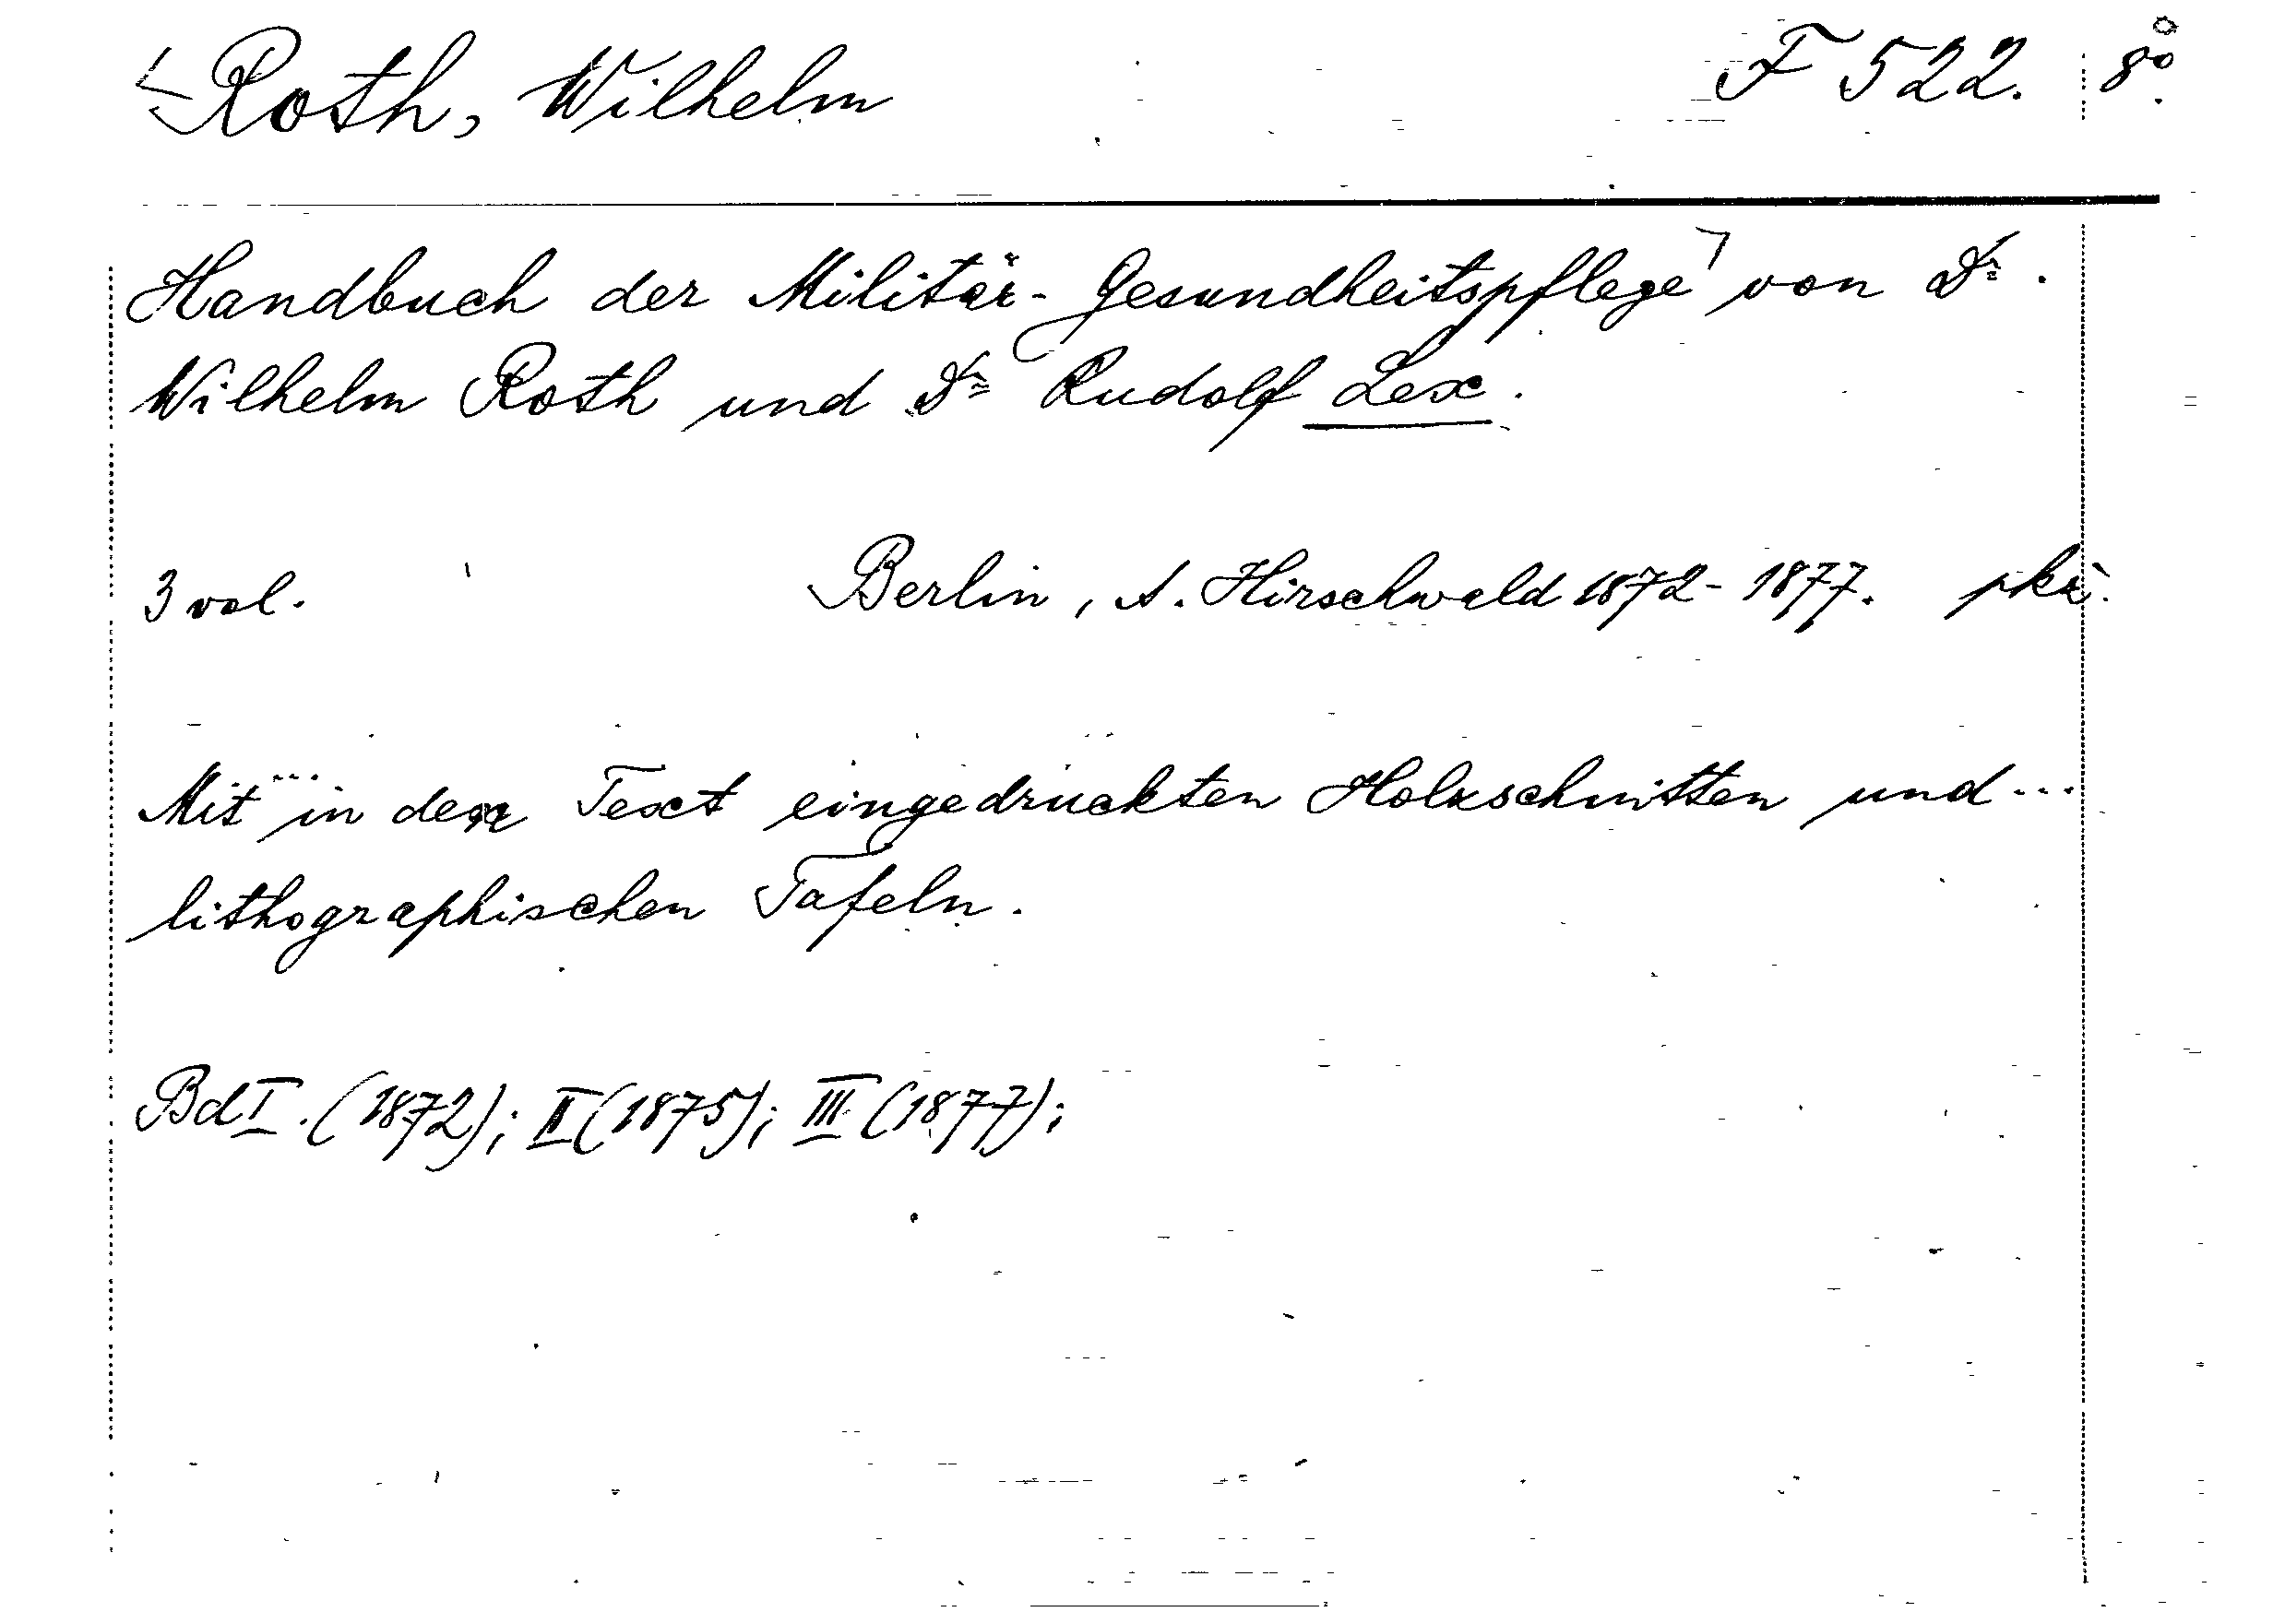 Roth, Wilhelm F 522. 8º.
Handbuch der Militär-Gesundheitspflege von Dr.
Wilhelm Roth und Dr Rudolf Lex.
3 vol. Berlin, A. Hirschwald 1872-1877.
Mit ... in den Text eingedruckten Holzschnitten und ...
lithographischen Tafeln.
Bd I. (1872); II (1875); III (1877);